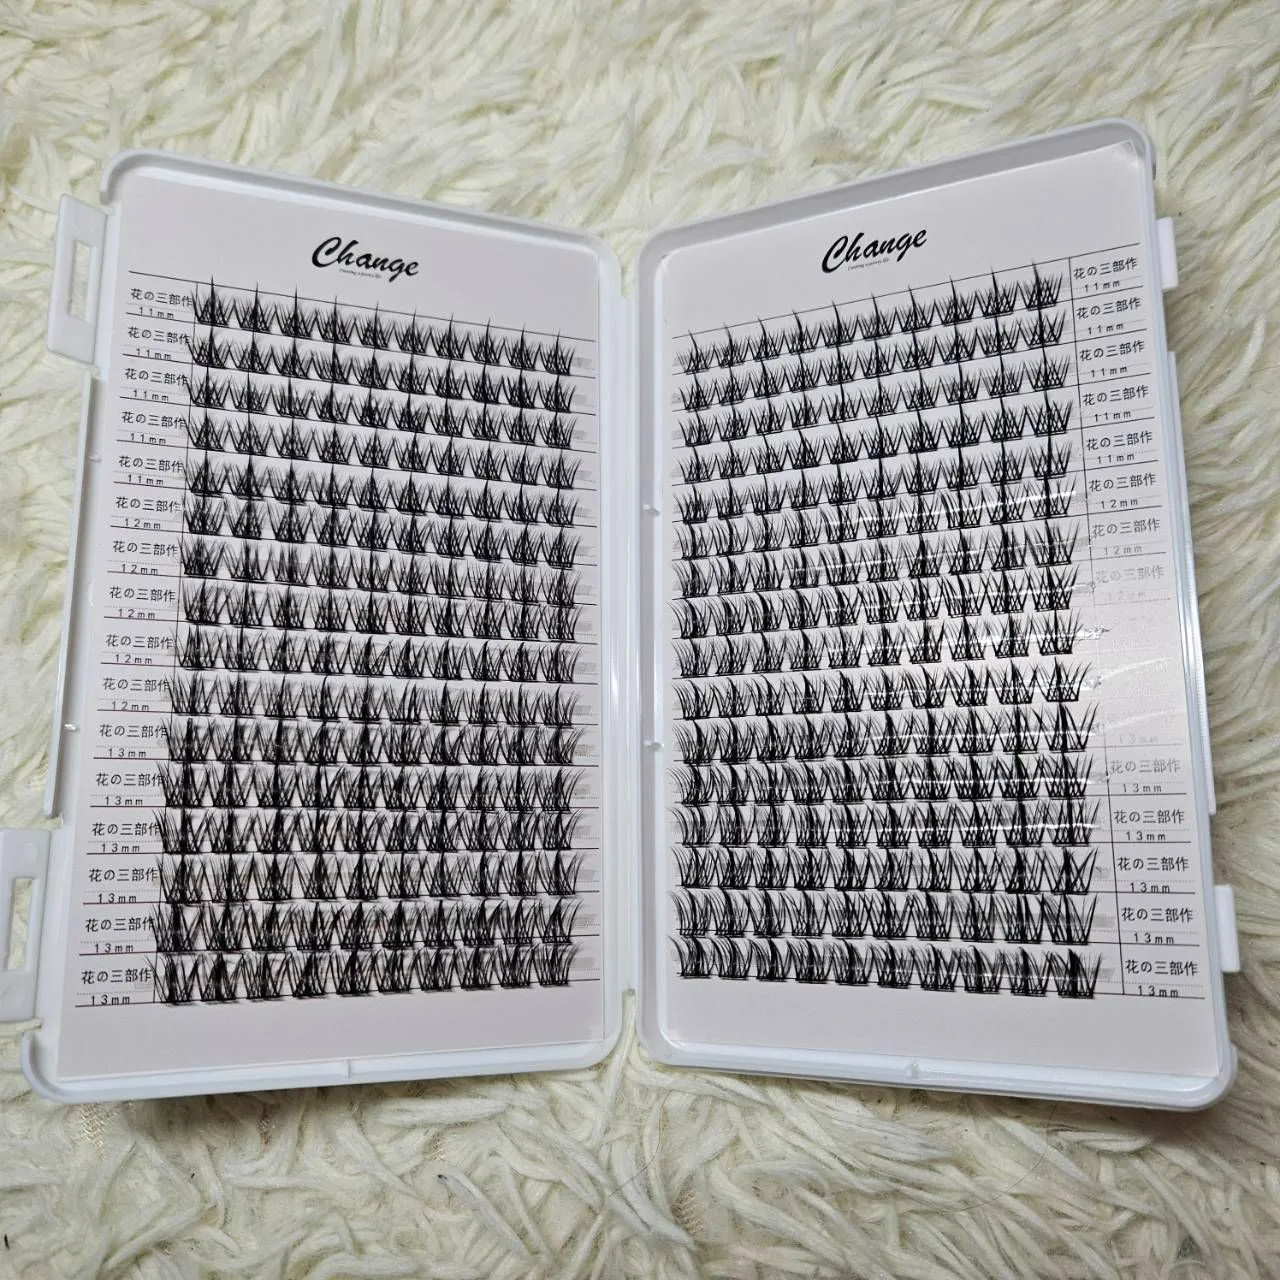 Change
花の三部作
11mm
花の三部作
11mm
花の三部作
11mm
花の三部作
11mm
花の三部作
11mm
花の三部作
12mm
花の三部作
12mm
花の三部作
12mm
花の三部作
12mm
花の三部作
12mm
花の三部作
13mm
花の三部作
13mm
花の三部作
13mm
花の三部作
13mm
花の三部作
13mm
花の三部作
13mm
Change
花の三部作
11mm
花の三部作
11mm
花の三部作
11mm
花の三部作
11mm
花の三部作
11mm
花の三部作
12mm
花の三部作
12mm
花の三部作
12mm
13mm
花の三部作
13mm
花の三部作
13mm
花の三部作
13mm
花の三部作
13mm
花の三部作
13mm